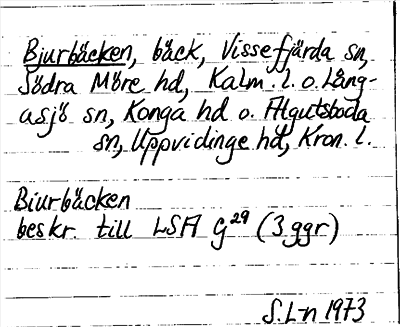 Bjurbäcken, bäck, Vissefjärda sn,
Södra Möre hd, Kalm. l. o. Lång-
asjö sn, Konga hd o. Älgutsboda
sn, Uppvidinge hd, Kron. l.
Bjurbäcken
beskr. till LSA G29 (3 ggr)
S.L-n 1973